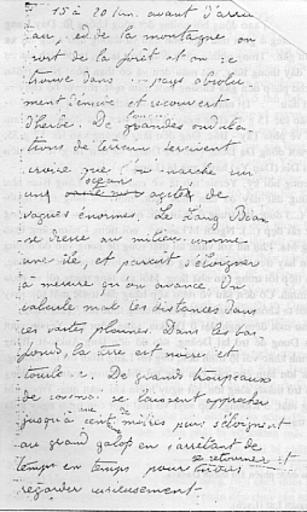 15 à 20 km. avant d'arri
au pied de la montagne on
sort de la forêt et on se
trouve dans un pays absolu
ment dénudé et recouvert
d'herbe. De grandes ondula
tions de terrain feraient
croire que l'on marche sur
une océan agitée de
vagues énormes. Le Lang Bian
se dresse au milieu comme
une île, et paraît s'éloigner
à mesure qu'on avance. On
calcule mal les distances dans
ces vastes plaines. Dans les bas
fonds, la terre est noire et
tourbe. De grands troupeaux
de se laissent approcher
jusqu'à cent mètres puis s'éloignent
au grand galop en s'arrêtant de
temps en temps pour se retourner et nous
regarder curieusement